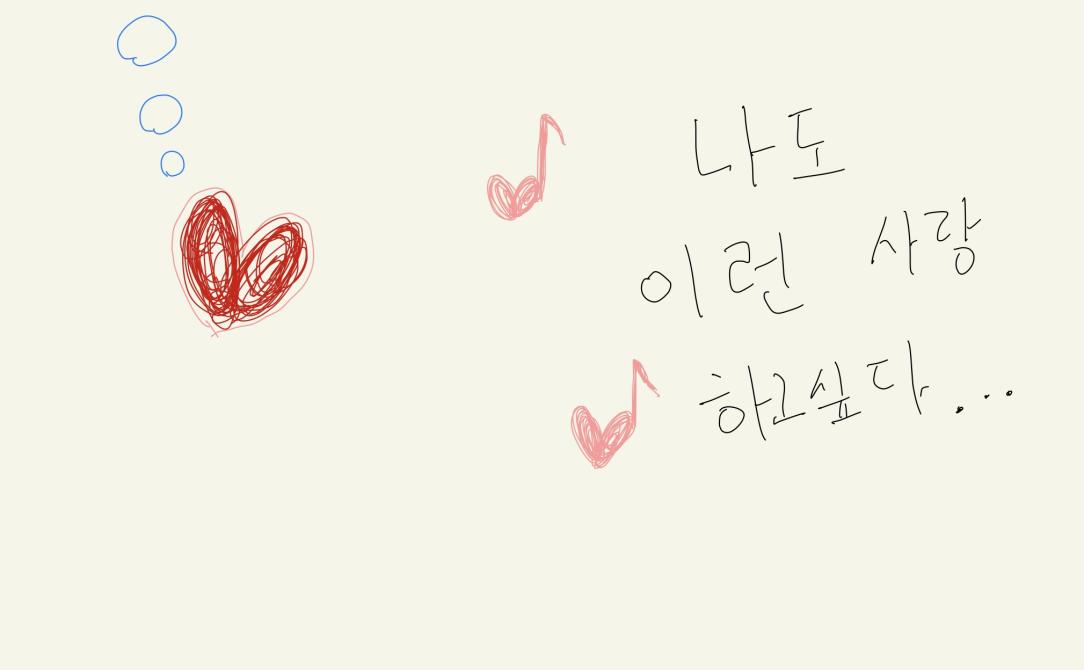 나도
이런 사랑
하고싶다...